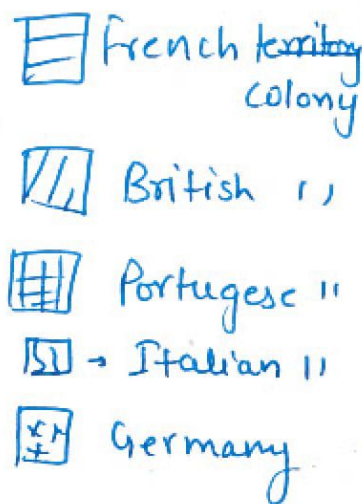 French territory
colony
British ''
Portugese "
→ Italian "
Germany